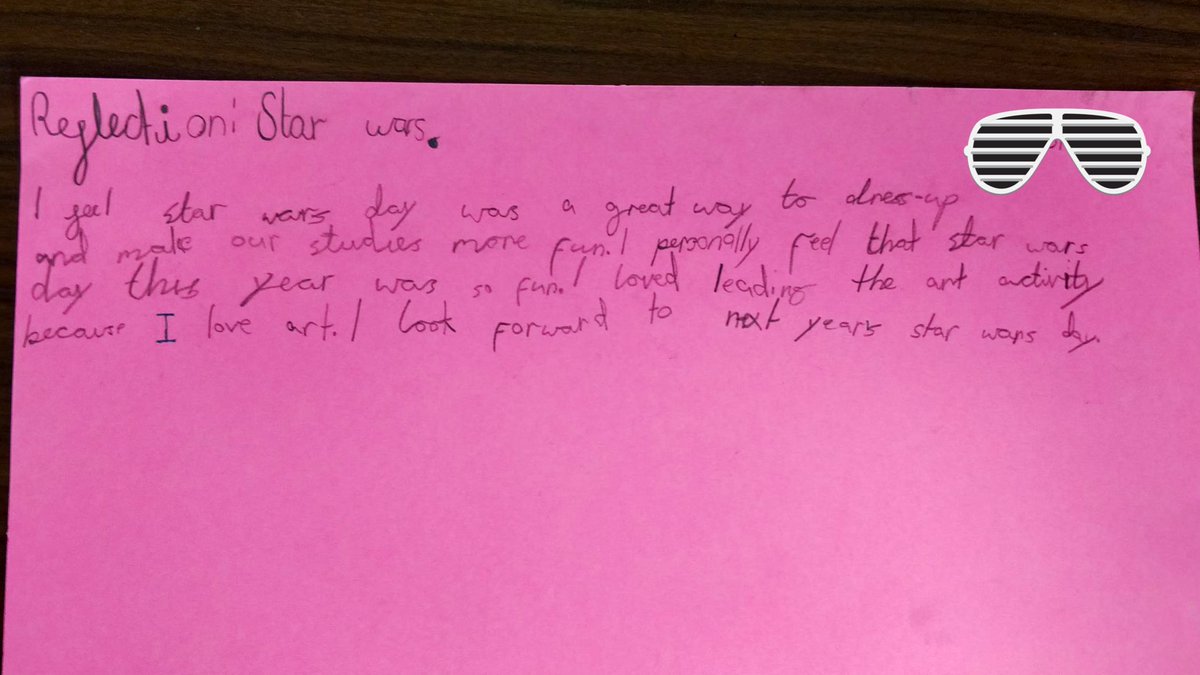 Reflection: Star wars.
I feel star wars day was a great way to dress-up
and make our studies more fun. I personally feel that star wars
day this year was so fun. I loved leading the art activity
because I love art. I look forward to next years star wars day.